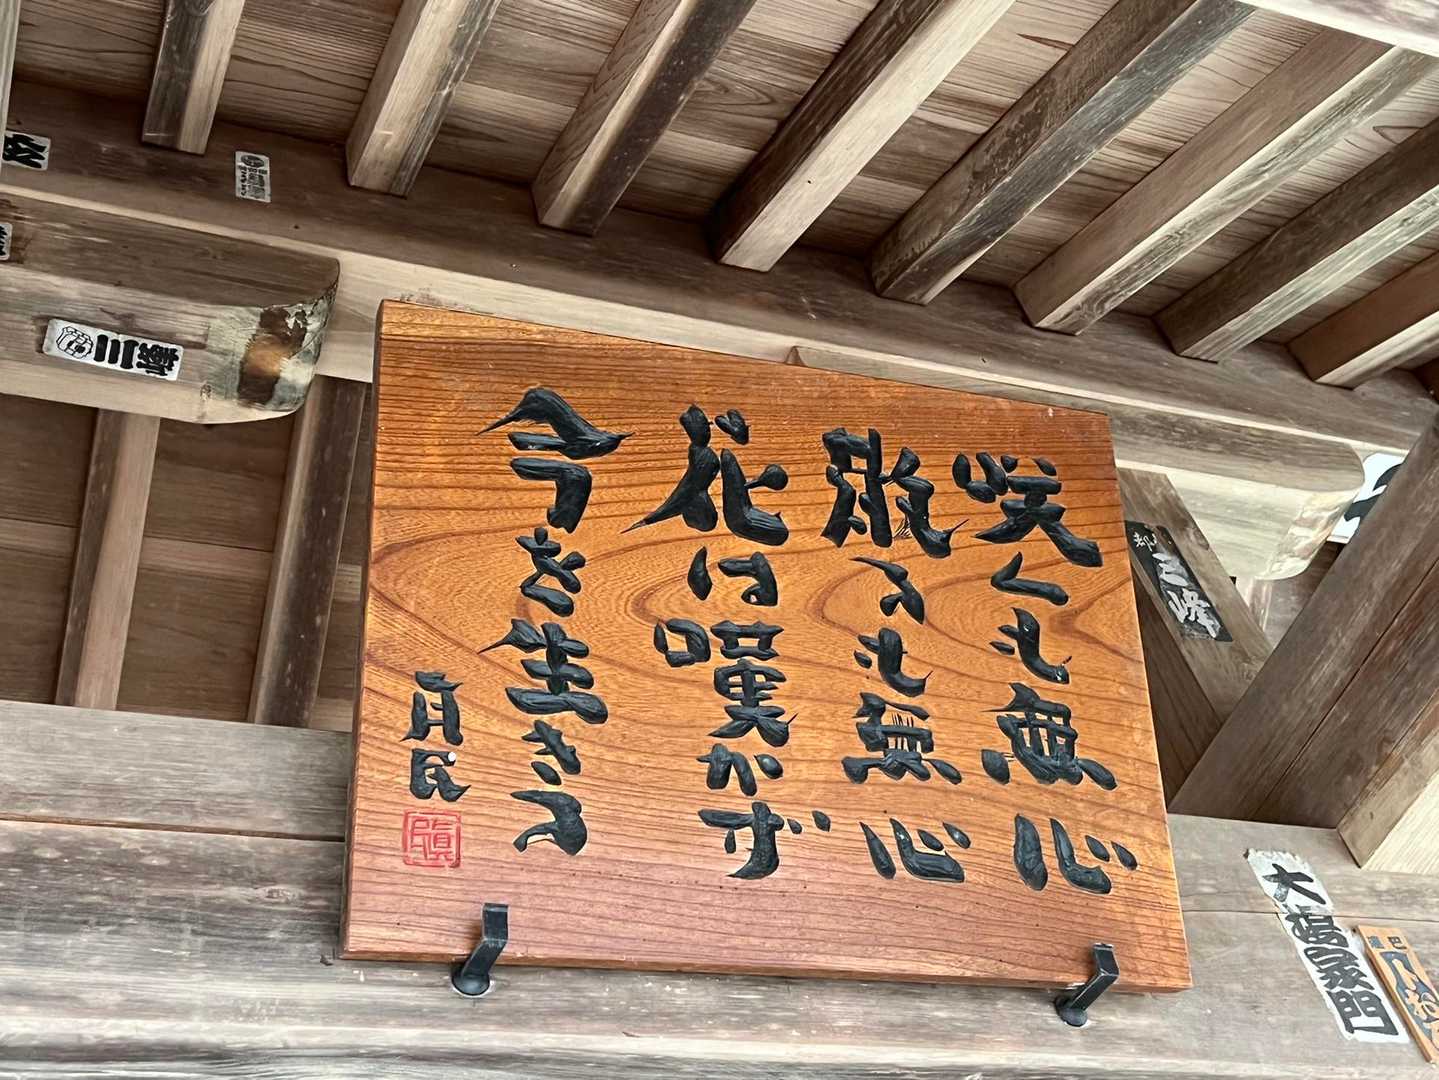 咲くも無心
散るも無心
花は嘆かず
今を生きる
大塚家門
三峰